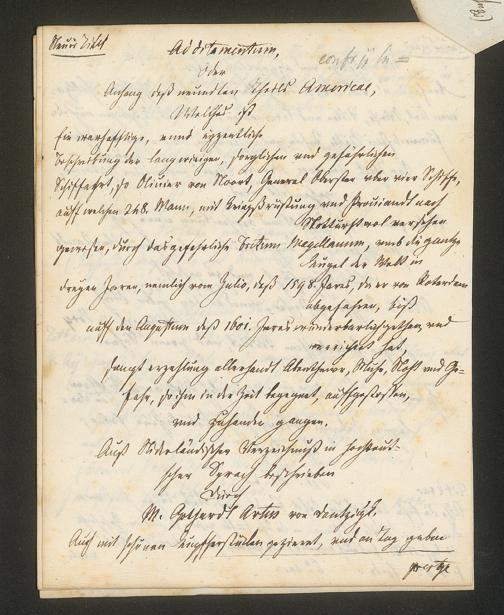 Neuer Titel
Additamentum,
Oder
Anhang deß neundten Theils Americae,
Welches ist
Ein warhafftige, vnnd eygentliche
Beschreibung der langwirigen, sorglichen vnd gefährlichen
Schiffahrt, so Olivier von Noort, General Oberster vber vier Schiffe,
auff welchen 248. Mann, mit Kriegßrüstung vnd Prouiandt nach
Notturfft wol versehen
gewesen, durch das gefehrliche Fretum Magellanum, vmb die gantze
Kugel der Welt in
dreyen Jaren, nemlich vom Julio, deß 1598. Jars, da er von Roterdam
abgefahren, biß
auff den Augustum deß 1601. Jares wunderbarlich gethan, vnd
verrichtet hat,
sampt erzehlung allerhandt Abentheuwr, Mühe, Noht vnd Ge=
fahr, so ihm in der Zeit begegnet, auffgestossen,
vnd zuhanden gangen.
Auß Niderländischer Verzeichnuß in hochteut=
scher Sprach beschrieben
Durch
M. Gothardt Artus von Dantzigk.
Auch mit schönen Kupfferstücken gezieret, vnd an Tag geben